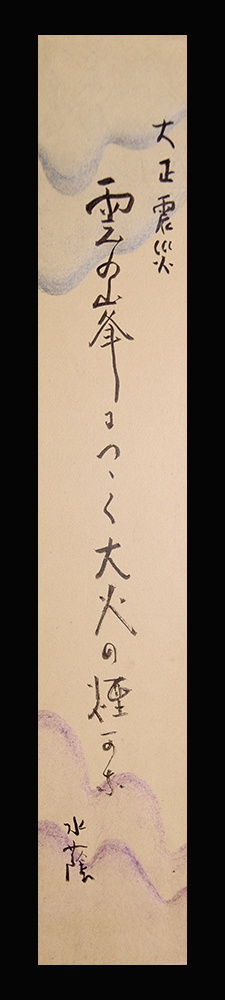 大正震災
雲の峯につゝく大火の煙可奈
水蔭